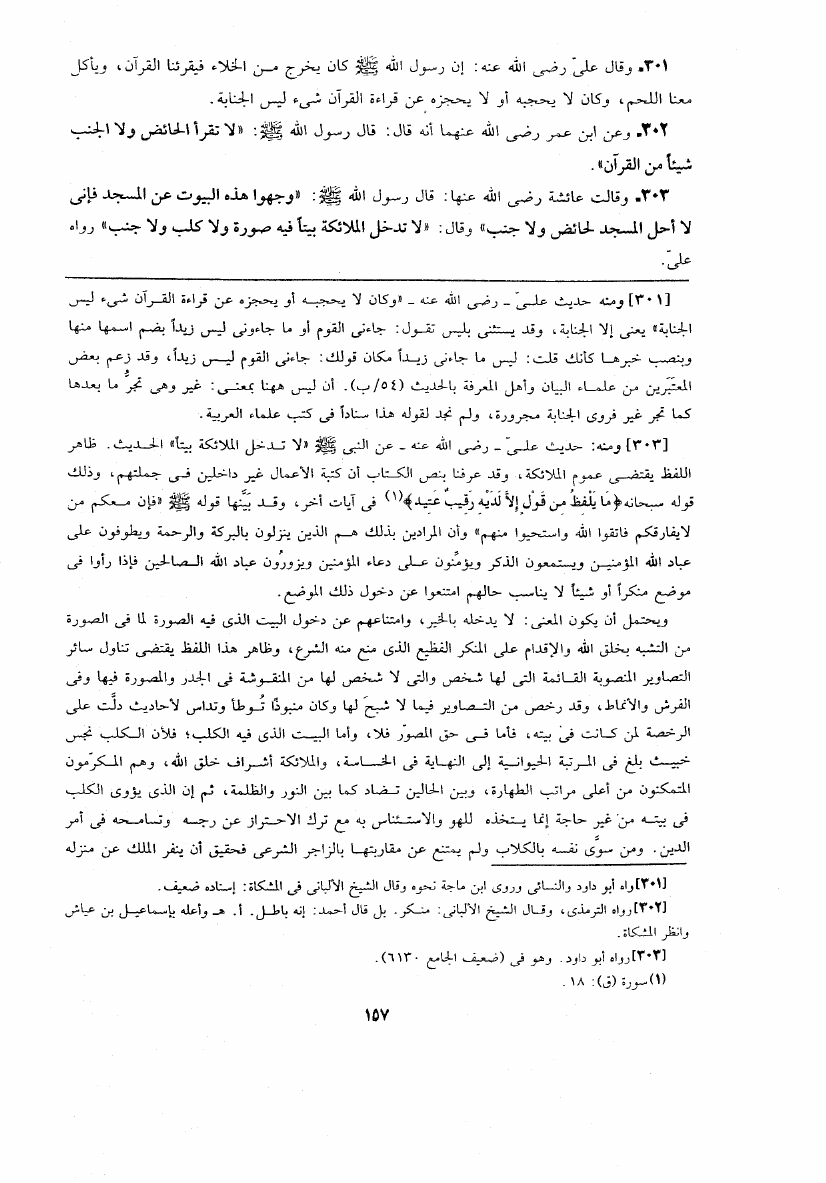 ٣٠١ـ وقال علىّ رضى الله عنه: إن رسول الله ﷺ كان يخرج مـن الخلاء فيقرئنا القرآن، ويأكل
معنا اللحم، وكان لا يحجبه أو لا يحجزه عن قراءة القرآن شىء ليس الجنابة.
٣٠٢ـ وعن ابن عمر رضى الله عنهما أنه قال: قال رسول الله ﷺ: «لا تقرأ الحائض ولا الجنب
شيئاً من القرآن».
٣٠٣ـ وقالت عائشة رضى الله عنها: قال رسول الله ﷺ: «وجهوا هذه البيوت عن المسجد فإنى
لا أحل المسجد لحائض ولا جنب» وقال: «لا تدخل الملائكة بيتاً فيه صورة ولا كلب ولا جنب» رواه
علىّ.
[٣٠١] ومنه حديث علـىّ ـ رضى الله عنه ـ «وكان لا يحجبـه أو يحجزه عن قراءة القـرآن شىء ليس
الجنابة» يعنى إلا الجنابة، وقد يسـتثنى بليس تقـول: جاءنى القوم أو ما جاءونى ليس زيداً بضم اسمها منها
وبنصب خبرهـا كأنك قلت: ليس ما جاءنى زيـداً مكان قولك: جاءنى القوم ليـس زيداً، وقد زعم بعض
المعتَبرين من علمـاء البيان وأهل المعرفة بالحديث (٥٤/ب). أن ليس ههنا بمعنـى: غير وهى تجرُّ ما بعدها
كما تجر غير فروى الجنابة مجرورة، ولم نجد لقوله هذا سناداً فى كتب علماء العربية.
[٣٠٣] ومنه: حديث علـىّ ـ رضى الله عنه ـ عن النبى ﷺ «لا تـدخل الملائكة بيتاً» الحـديث. ظاهر
اللفظ يقتضـى عموم الملائكة، وقد عرفنا بنص الكـتاب أن كتبة الأعمال غير داخلين فـى جملتهم، وذلك
قوله سبحانه﴿مَا يَلْفظُ من قَوْل إلاَّ لَدَيْه رَقيبٌ عَتيد﴾(١) فى آيات أخر، وقـد بَيَّنها قوله ﷺ «فإن مـعكم من
لايفارقكم فاتقوا الله واستحيوا منهم» وأن المرادين بذلك هـم الذين ينزلون بالبركة والرحمة ويطوفون على
عباد الله المؤمنيـن ويستمعون الذكر ويؤمِّنون عـلى دعاء المؤمنين ويزورُون عباد الله الـصالحين فإذا رأوا فى
موضع منكراً أو شيئاً لا يناسب حالهم امتنعوا عن دخول ذلك الموضع.
ويحتمل أن يكون المعنى: لا يدخله بالخير، وامتناعهم عن دخول البيت الذى فيه الصورة لما فى الصورة
من التشبه بخلق الله والإقدام على المنكر الفظيع الذى منع منه الشرع، وظاهر هذا اللفظ يقتضى تناول سائر
التصاوير المنصوبة القـائمة التى لها شـخص والتى لا شخص لها من المنقـوشة فى الجدر والمصورة فيها وفى
الفرش والأنماط، وقد رخص من التـصاوير فيما لا شبحَ لها وكان منبوذًا تُـوطأ وتداس لأحاديث دلَّت على
الرخصة لمن كـانت فى بيته، فأما فـى حق المصوّر فلا، وأما البيـت الذى فيه الكلب؛ فلأن الـكلب نجس
خبيـث بلغ فى المـرتبة الحيوانـية إلى النهـاية فى الخـساسة، والملائكة أشـراف خلق الله، وهم المـكرّمون
المتمكنون من أعلى مراتب الطهارة، وبين الحالين تـضاد كما بين النور والظلمة، ثم إن الذى يؤوى الكلب
فى بيتـه من غير حاجة إنما يـتخذه للهو والاستـئناس به مع ترك الاحـتراز عن رجسـه وتسامـحه فى أمر
الدين. ومن سوَّى نفسـه بالكلاب ولم يمتنع عن مقاربتهـا بالزاجر الشرعى فحقيق أن ينفر الملك عن منزله
[٣٠١]رواه أبو داود والنسائى وروى ابن ماجة نحوه وقال الشيخ الألبانى فى المشكاة: إسناده ضعيف.
[٣٠٢]رواه الترمذى، وقـال الشيخ الألبانى: منـكر. بل قال أحمد: إنه باطـل. أ. هـ وأعله بإسماعيـل بن عياش
وانظر المشكاة.
[٣٠٣]رواه أبو داود. وهو فى (ضعيف الجامع ٦١٣٠).
(١)سورة (ق): ١٨ .
١٥٧